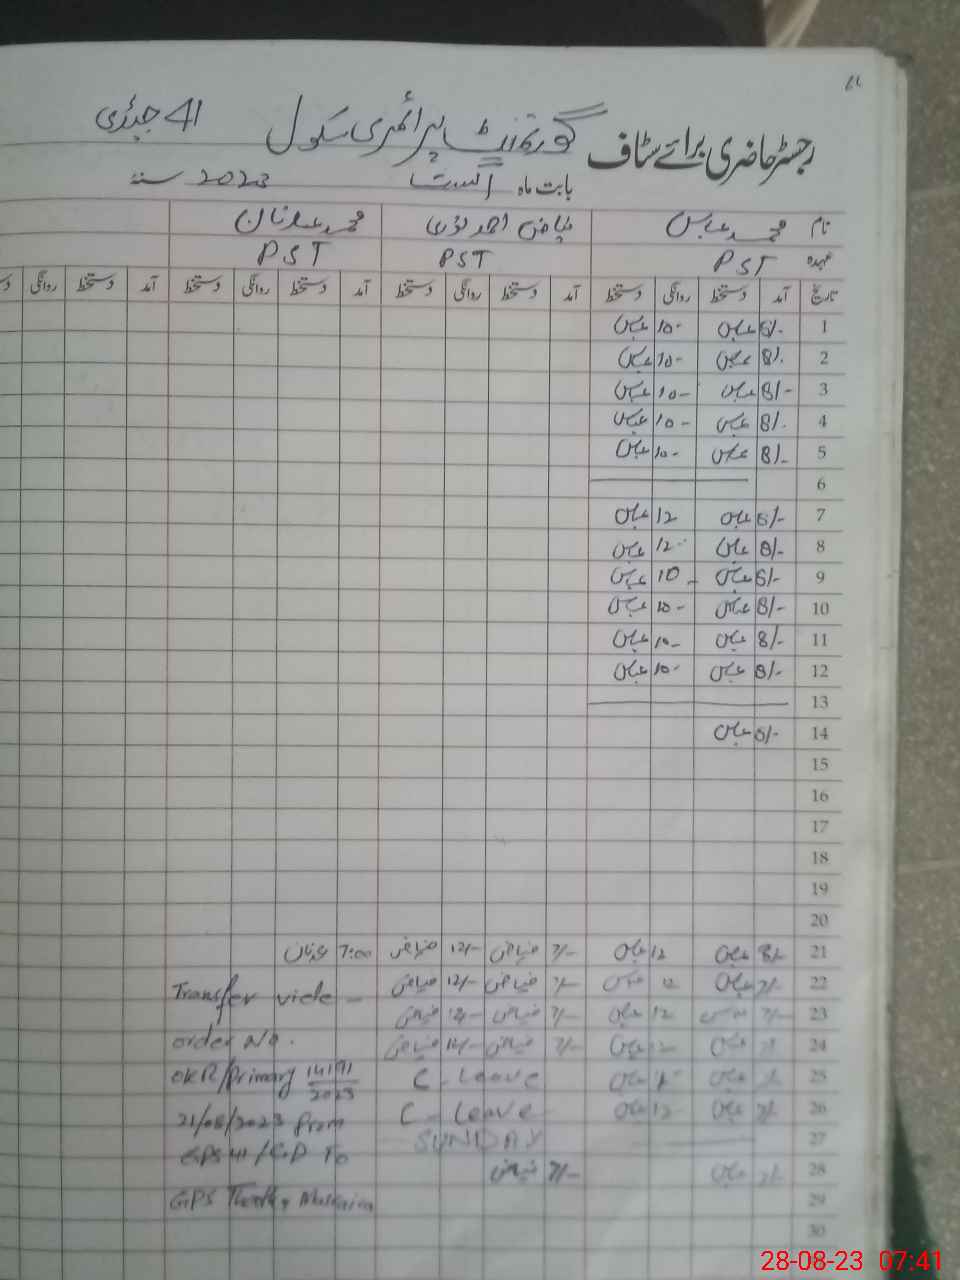 رجسٹر حاضری برائے سٹاف گورنمنٹ پرائمری سکول 41 جی ڈی
بابت ماہ اگست 2023 سنہ
نام محمد عباس فیاض احمد نوری محمد عدنان
عہدہ PST PST PST
تاریخ آمد دستخط روانگی دستخط آمد دستخط روانگی دستخط آمد دستخط روانگی دستخط آمد دستخط روانگی
1 8/- عباس 10- عباس
2 8/- عباس 10- عباس
3 8/- عباس 10- عباس
4 8/- عباس 10- عباس
5 8/- عباس 10- عباس
6
7 8/- عباس 12 عباس
8 8/- عباس 12- عباس
9 8/- عباس 10- عباس
10 8/- عباس 10- عباس
11 8/- عباس 10- عباس
12 8/- عباس 10- عباس
13
14 8/- عباس
15
16
17
18
19
20
21 8/- عباس 12 عباس 7/- فیاض 12/- فیاض 7:00 عدنان
22 7/- عباس 12 عباس 7/- فیاض 12/- فیاض Transfer vide -
23 7/- عباس 12 عباس 7/- فیاض 12/- فیاض
24 عباس 12 عباس 7/- فیاض 12/- فیاض order No.
25 عباس عباس C-Leave OKR/Primary 14191/2023
26 7/- عباس 12 عباس C-Leave 21/08/2023 from
27 SUNDAY GPS 41/GD To
28 عباس 7/- فیاض
29 GPS
30
28-08-23 07:41